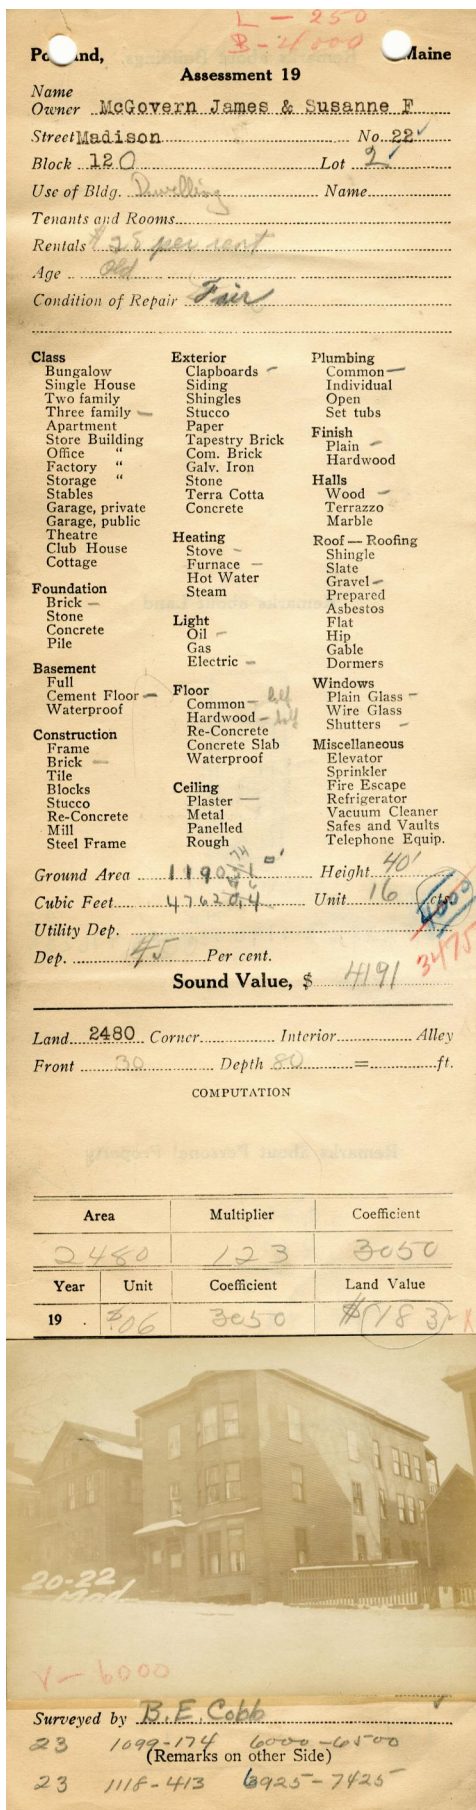 L - 250
B - 4000
Po nd, Maine
Assessment 19
Name
Owner McGovern James & Susanne F
Street Madison No. 22 ✓
Block 120 Lot 2
Use of Bldg. Dwelling Name
Tenants and Rooms
Rentals $28 per rent
Age Old
Condition of Repair Fair
Class
Bungalow
Single House
Two family
Three family —
Apartment
Store Building
Office "
Factory "
Storage "
Stables
Garage, private
Garage, public
Theatre
Club House
Cottage
Foundation
Brick —
Stone
Concrete
Pile
Basement
Full
Cement Floor —
Waterproof
Construction
Frame
Brick —
Tile
Blocks
Stucco
Re-Concrete
Mill
Steel Frame
Exterior
Clapboards —
Siding
Shingles
Stucco
Paper
Tapestry Brick
Com. Brick
Galv. Iron
Stone
Terra Cotta
Concrete
Heating
Stove —
Furnace —
Hot Water
Steam
Light
Oil —
Gas
Electric —
Floor
Common — half
Hardwood — half
Re-Concrete
Concrete Slab
Waterproof
Ceiling
Plaster —
Metal
Panelled
Rough
Plumbing
Common —
Individual
Open
Set tubs
Finish
Plain —
Hardwood
Halls
Wood —
Terrazzo
Marble
Roof — Roofing
Shingle
Slate
Gravel —
Prepared
Asbestos
Flat
Hip
Gable
Dormers
Windows
Plain Glass —
Wire Glass
Shutters —
Miscellaneous
Elevator
Sprinkler
Fire Escape
Refrigerator
Vacuum Cleaner
Safes and Vaults
Telephone Equip.
Ground Area 1190 □' Height 40'
Cubic Feet Unit 16 cts.
4000
Utility Dep.
3475
Dep. 45 Per cent.
Sound Value, $ 4191
Land 2480 Corner Interior Alley
Front 30 Depth 80 = ft.
COMPUTATION
Area Multiplier Coefficient
2480 123 3050
Year Unit Coefficient Land Value
19 . $.06 3050 $183
20-22
Mad
V - 6000
Surveyed by B. E. Cobb
23 1099-174 6000-6500
(Remarks on other Side)
23 1118-413 6925-7425